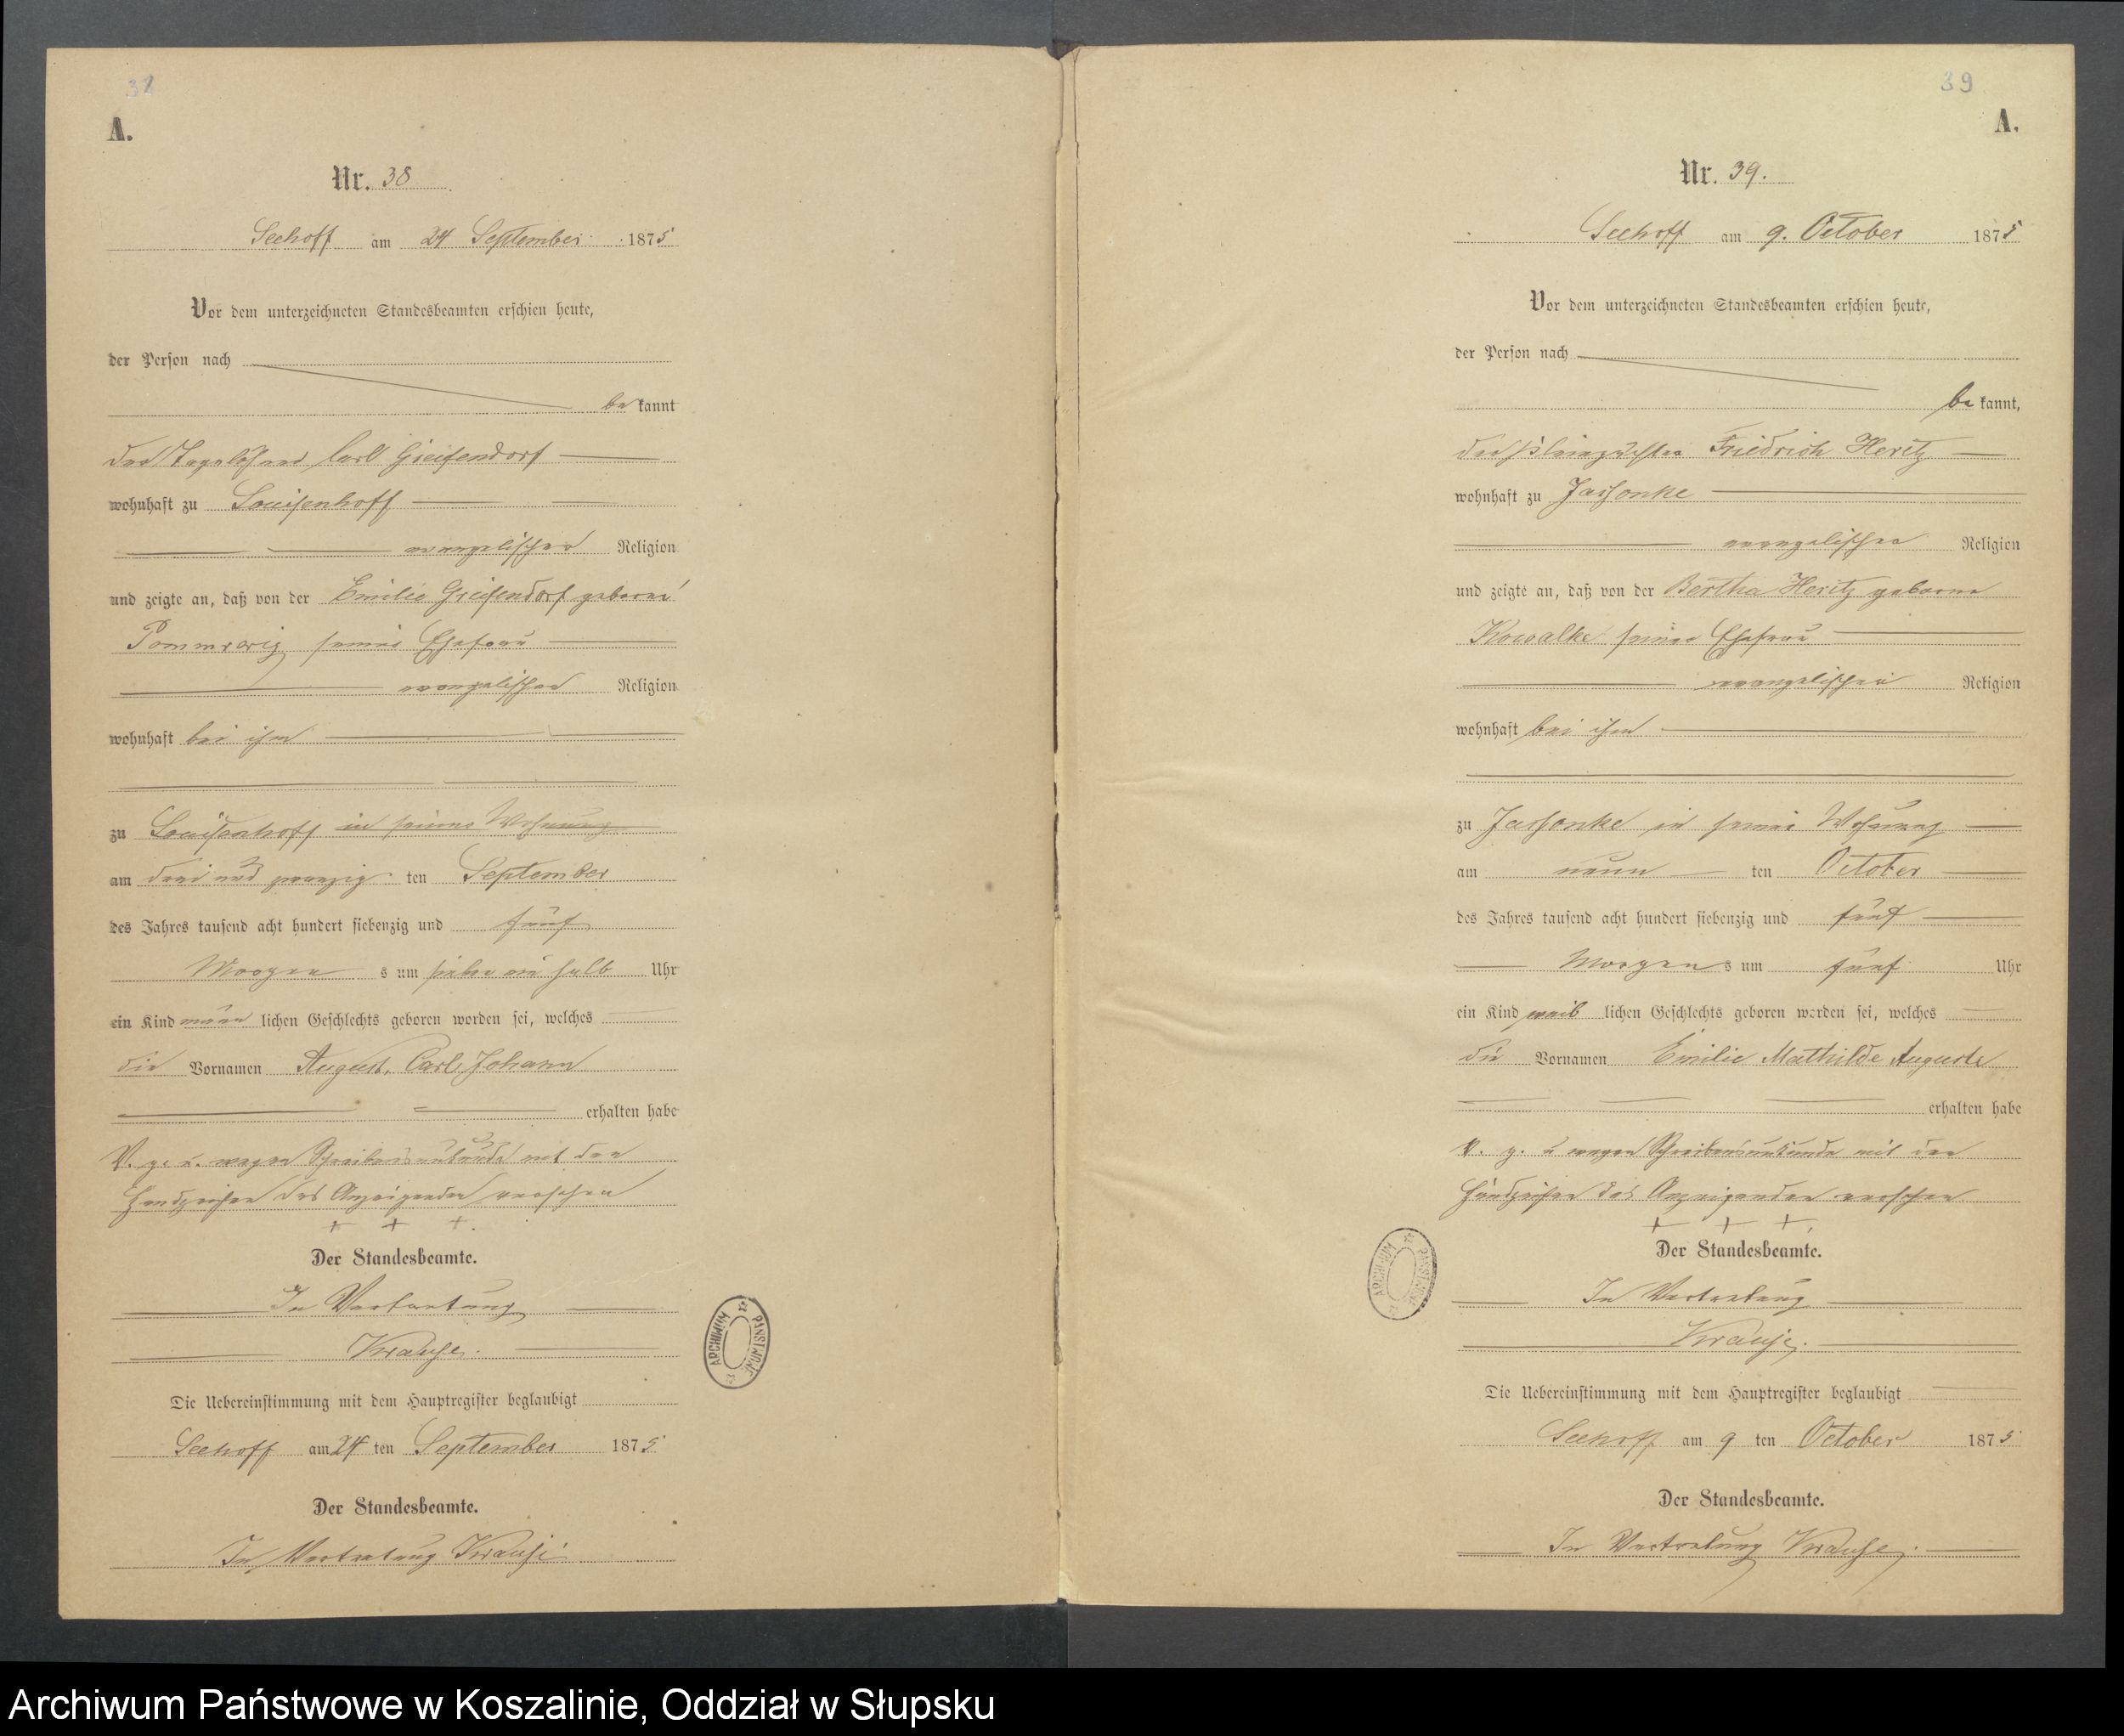 38
A.
Nr. 38
Seehoff am 24 September 1875
Vor dem unterzeichneten Standesbeamten erschien heute,
der Person nach
be kannt
der Tagelöhner Carl Greifendorf
wohnhaft zu Louisenhoff
evangelischer Religion
und zeigte an, daß von der Emilie Greifendorf geborne
Pommrenig seiner Ehefrau
evangelischer Religion
wohnhaft bei ihm
zu Louisenhoff in seiner Wohnung
am drei und zwanzig ten September
des Jahres tausend acht hundert siebenzig und fünf
Morgen s um sieben ein halb Uhr
ein Kind männ lichen Geschlechts geboren worden sei, welches
die Vornamen August, Carl Johann
erhalten habe
V. g. u. wegen Schreibensunkunde mit den
Handzeichen des Anzeigenden versehen
+ + +.
Der Standesbeamte.
In Vertretung
Krause.
Die Uebereinstimmung mit dem Hauptregister beglaubigt
Seehoff am 24 ten September 1875
Der Standesbeamte.
In Vertretung Krause
ARCHIWUM PAŃSTWOWE
39
A.
Nr. 39.
Seehoff am 9. October 1875
Vor dem unterzeichneten Standesbeamten erschien heute,
der Person nach
be kannt,
der Friedrich Heritz
wohnhaft zu Jassonke
evangelischer Religion
und zeigte an, daß von der Bertha Heritz geborne
Kowalke seiner Ehefrau
evangelischer Religion
wohnhaft bei ihm
zu Jassonke in seiner Wohnung
am neun ten October
des Jahres tausend acht hundert siebenzig und fünf
Morgen s um fünf Uhr
ein Kind weib lichen Geschlechts geboren worden sei, welches
die Vornamen Emilie Mathilde Auguste
erhalten habe
V. g. u wegen Schreibensunkunde mit den
Handzeichen des Anzeigenden versehen
+ + +
Der Standesbeamte.
In Vertretung
Krause.
Die Uebereinstimmung mit dem Hauptregister beglaubigt
Seehoff am 9 ten October 1875
Der Standesbeamte.
In Vertretung Krause.
ARCHIWUM PAŃSTWOWE
Archiwum Państwowe w Koszalinie, Oddział w Słupsku